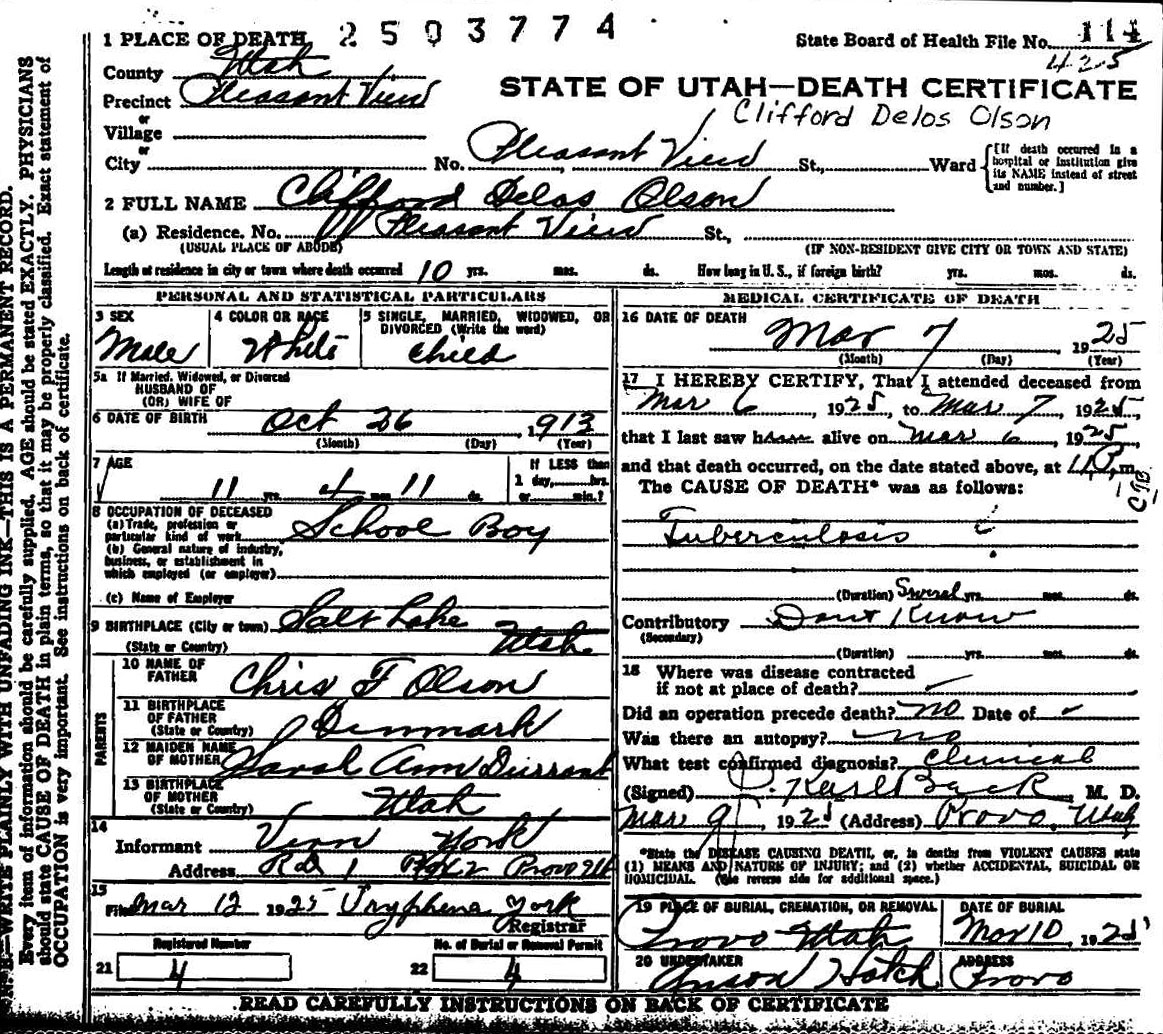 2503774
1 PLACE OF DEATH
State Board of Health File No. 114
425
County Utah
Precinct Pleasant View
STATE OF UTAH—DEATH CERTIFICATE
Clifford Delos Olson
or
Village
or
City No. Pleasant View St., Ward
[If death occurred in a hospital or institution give its NAME instead of street and number.]
2 FULL NAME Clifford Delos Olson
(a) Residence. No. Pleasant View St.,
(USUAL PLACE OF ABODE) (IF NON-RESIDENT GIVE CITY OR TOWN AND STATE)
Length of residence in city or town where death occurred 10 yrs. mos. ds. How long in U. S., if foreign birth? yrs. mos. ds.
PERSONAL AND STATISTICAL PARTICULARS
3 SEX
Male
4 COLOR OR RACE
White
5 SINGLE, MARRIED, WIDOWED, OR DIVORCED (Write the word)
Child
5a If Married, Widowed, or Divorced
HUSBAND OF
(OR) WIFE OF
6 DATE OF BIRTH Oct 26 1913
(Month) (Day) (Year)
7 AGE
11 yrs. 4 mos. 11 ds.
If LESS than
1 day, hrs.
or min.?
8 OCCUPATION OF DECEASED
(a) Trade, profession or
particular kind of work School Boy
(b) General nature of industry,
business, or establishment in
which employed (or employer)
(c) Name of Employer
9 BIRTHPLACE (City or town) Salt Lake
(State or Country) Utah
PARENTS
10 NAME OF
FATHER Chris F Olson
11 BIRTHPLACE
OF FATHER
(State or Country) Denmark
12 MAIDEN NAME
OF MOTHER Sarah Ann Durrant
13 BIRTHPLACE
OF MOTHER
(State or Country) Utah
14
Informant Vern York
Address RD 1 Box 2 Provo Ut
15
Filed Mar 12 1925 Tryphena York
Registrar
Registered Number
21 4
No. of Burial or Removal Permit
22 4
MEDICAL CERTIFICATE OF DEATH
16 DATE OF DEATH
Mar 7 1925
(Month) (Day) (Year)
17 I HEREBY CERTIFY, That I attended deceased from
Mar 6, 1925, to Mar 7, 1925,
that I last saw him alive on Mar 6, 1925,
and that death occurred, on the date stated above, at 4 P. m.
The CAUSE OF DEATH* was as follows:
Tuberculosis ?
(Duration) Several yrs. mos. ds.
Contributory Dont Know
(Secondary)
(Duration) yrs. mos. ds.
18 Where was disease contracted
if not at place of death?
Did an operation precede death? no Date of
Was there an autopsy? no
What test confirmed diagnosis? Clinical
(Signed) Karl Back, M. D.
Mar 9, 1925 (Address) Provo, Utah
*State the DISEASE CAUSING DEATH, or, in deaths from VIOLENT CAUSES state
(1) MEANS AND NATURE OF INJURY; and (2) whether ACCIDENTAL, SUICIDAL OR
HOMICIDAL. (See reverse side for additional space.)
19 PLACE OF BURIAL, CREMATION, OR REMOVAL
Provo Utah
DATE OF BURIAL
Mar 10, 1925
20 UNDERTAKER
Anson Hatch
ADDRESS
Provo
READ CAREFULLY INSTRUCTIONS ON BACK OF CERTIFICATE
WRITE PLAINLY WITH UNFADING INK—THIS IS A PERMANENT RECORD.
Every item of information should be carefully supplied. AGE should be stated EXACTLY. PHYSICIANS
should state CAUSE OF DEATH in plain terms, so that it may be properly classified. Exact statement of
OCCUPATION is very important. See instructions on back of certificate.